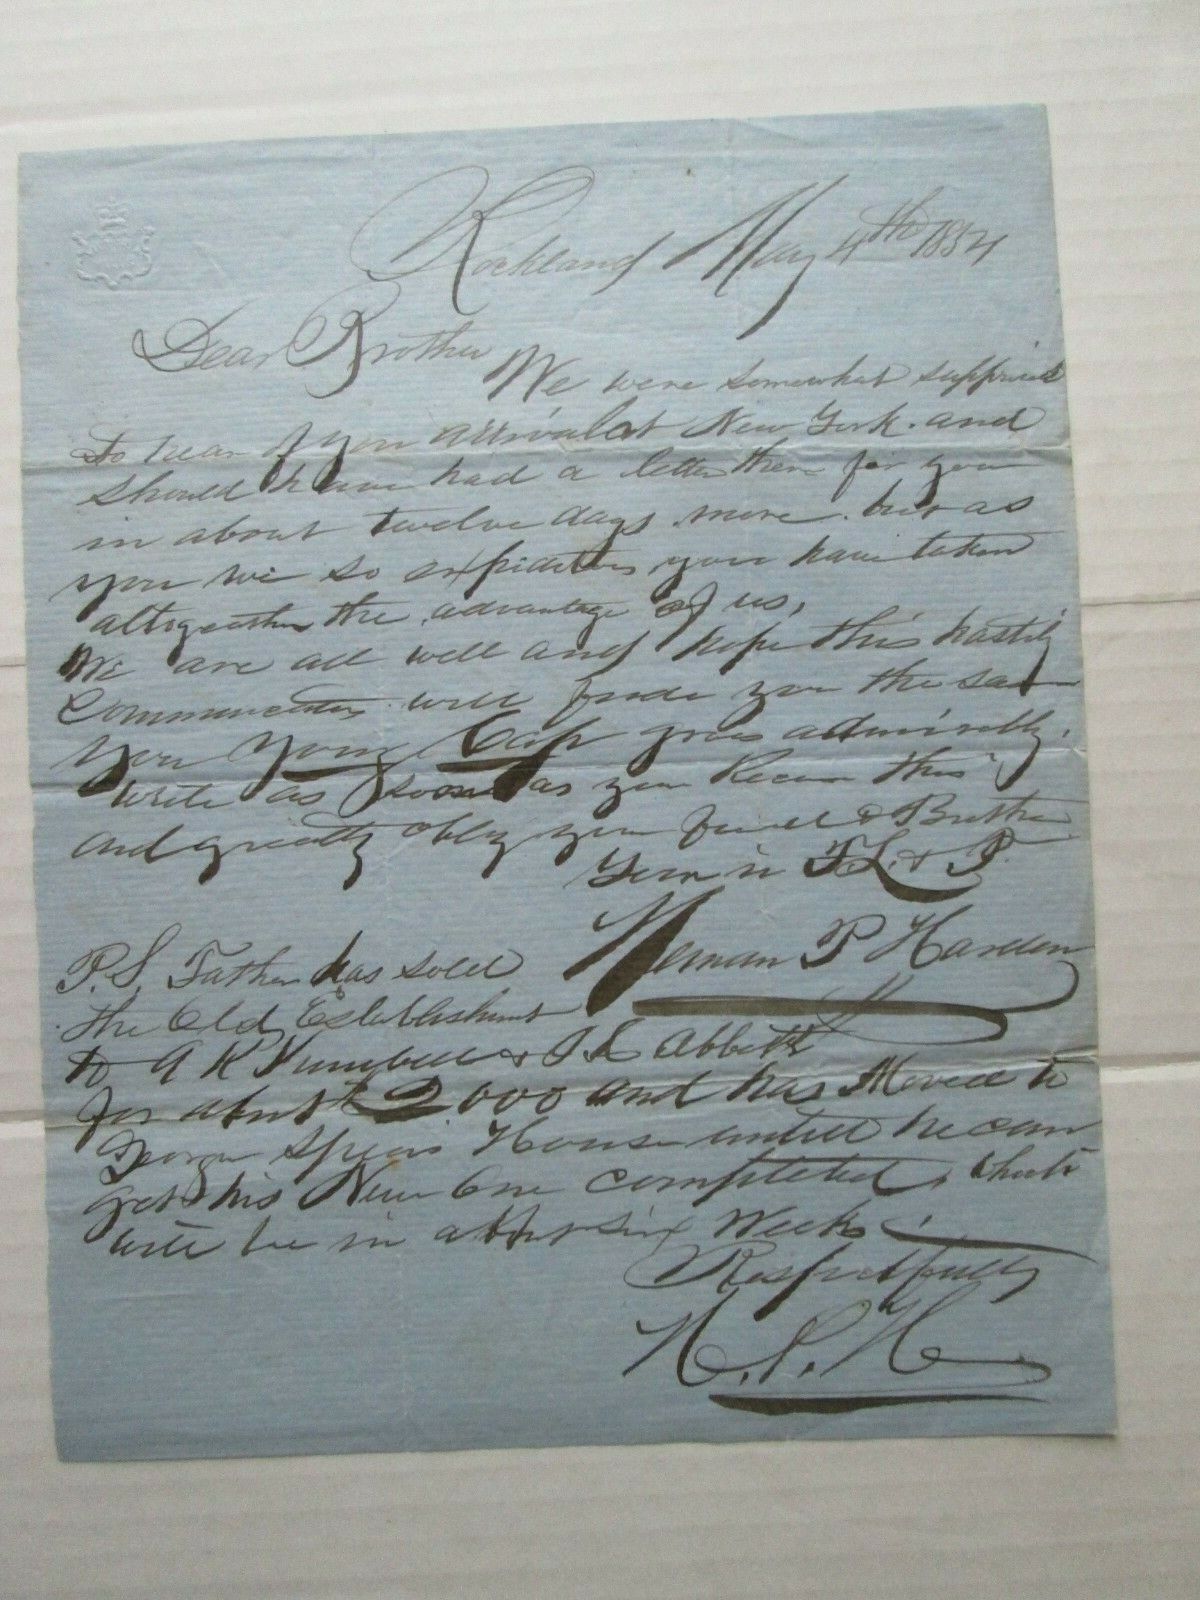 Rockland May 4th 1854
Dear Brother
We were somewhat supprised
to hear of you arrival at New York. and
should have had a letter there for you
in about twelve days more. but as
you we so expiditious you have taken
altogeather the advantage of us,
We are all well and hope this hastily
Communication will finde you the same
you Young Cap grows admirably.
write as soon as you Receive this
and greatly oblige your friend & Brother
Yours in F. L. & T.
P Harden
P.S. Father has sold
the Old Establishment
to A K & I L Abbott
for about 2000 and has Moved to
George Spears House untill he can
get his New One completed, which
will be in about six Weeks
Respectfully
H.